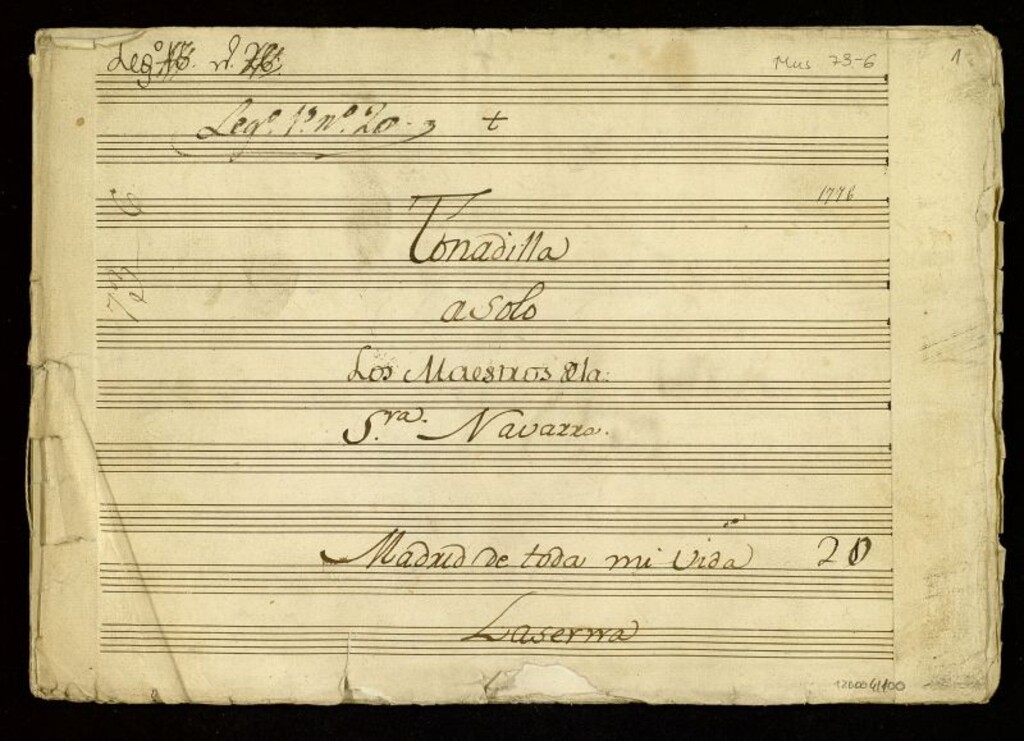 Leg.º
Mus 73-6
1
Leg.º 1º nº 20
1776
Tonadilla
a solo
Los Maestros de la
S.ra Navarra.
Madrid de toda mi vida 20
Laserna